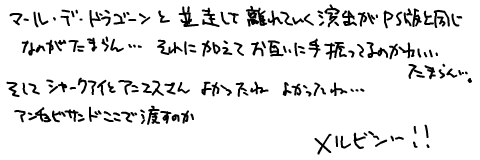 マール・デ・ドラゴーンと並走して離れていく演出がPS版と同じ
なのがたまらん… それに加えてお互いに手振ってるのかわいい
たまらん…。
そしてシャークアイとアニエスさん よかったね よかったね…
アンチョビサンドここで渡すのか
メルビンー!!